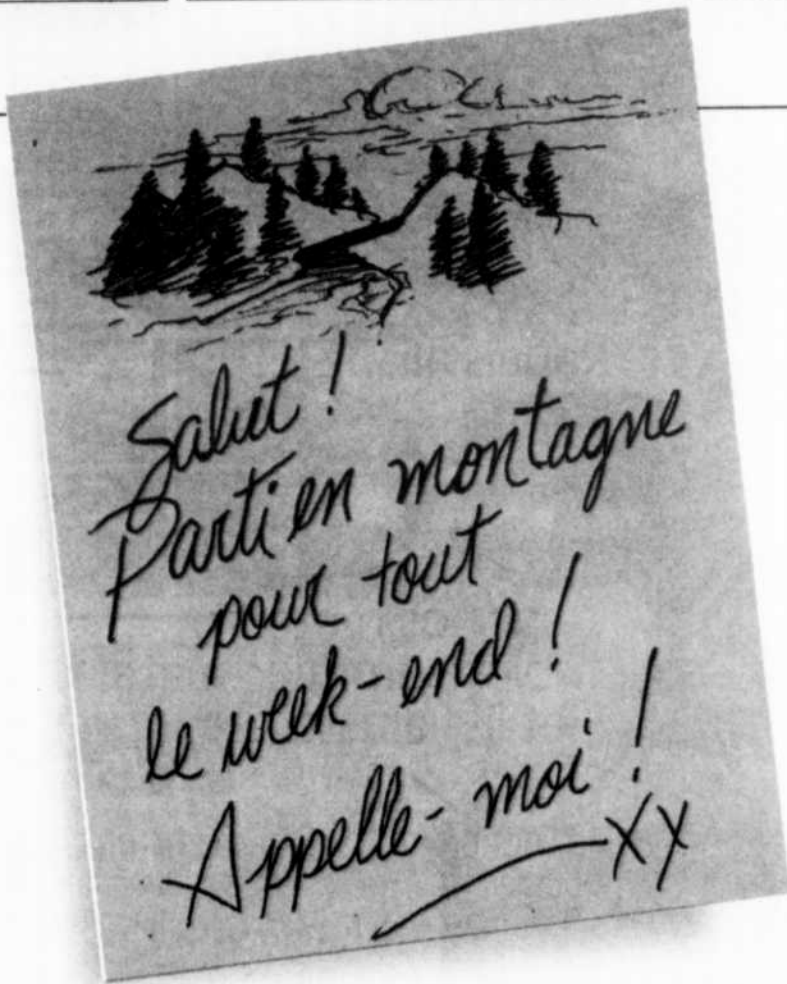 Salut !
Parti en montagne
pour tout
le week-end !
Appelle-moi !
XX